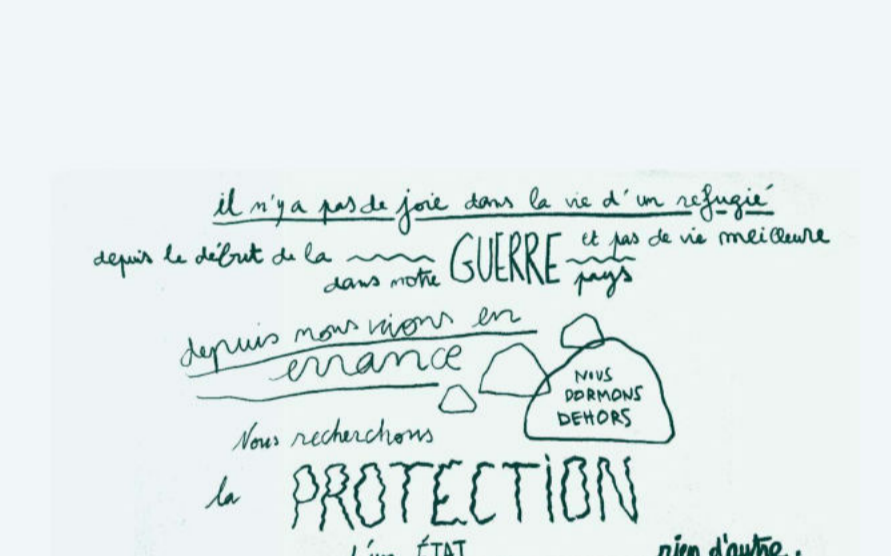 il n'y a pas de joie dans la vie d'un refugié
depuis le début de la GUERRE et pas de vie meilleure
dans notre pays
depuis nous vivons en
errance
NOUS
DORMONS
DEHORS
Nous recherchons
la PROTECTION
d'un ÉTAT
rien d'autre.